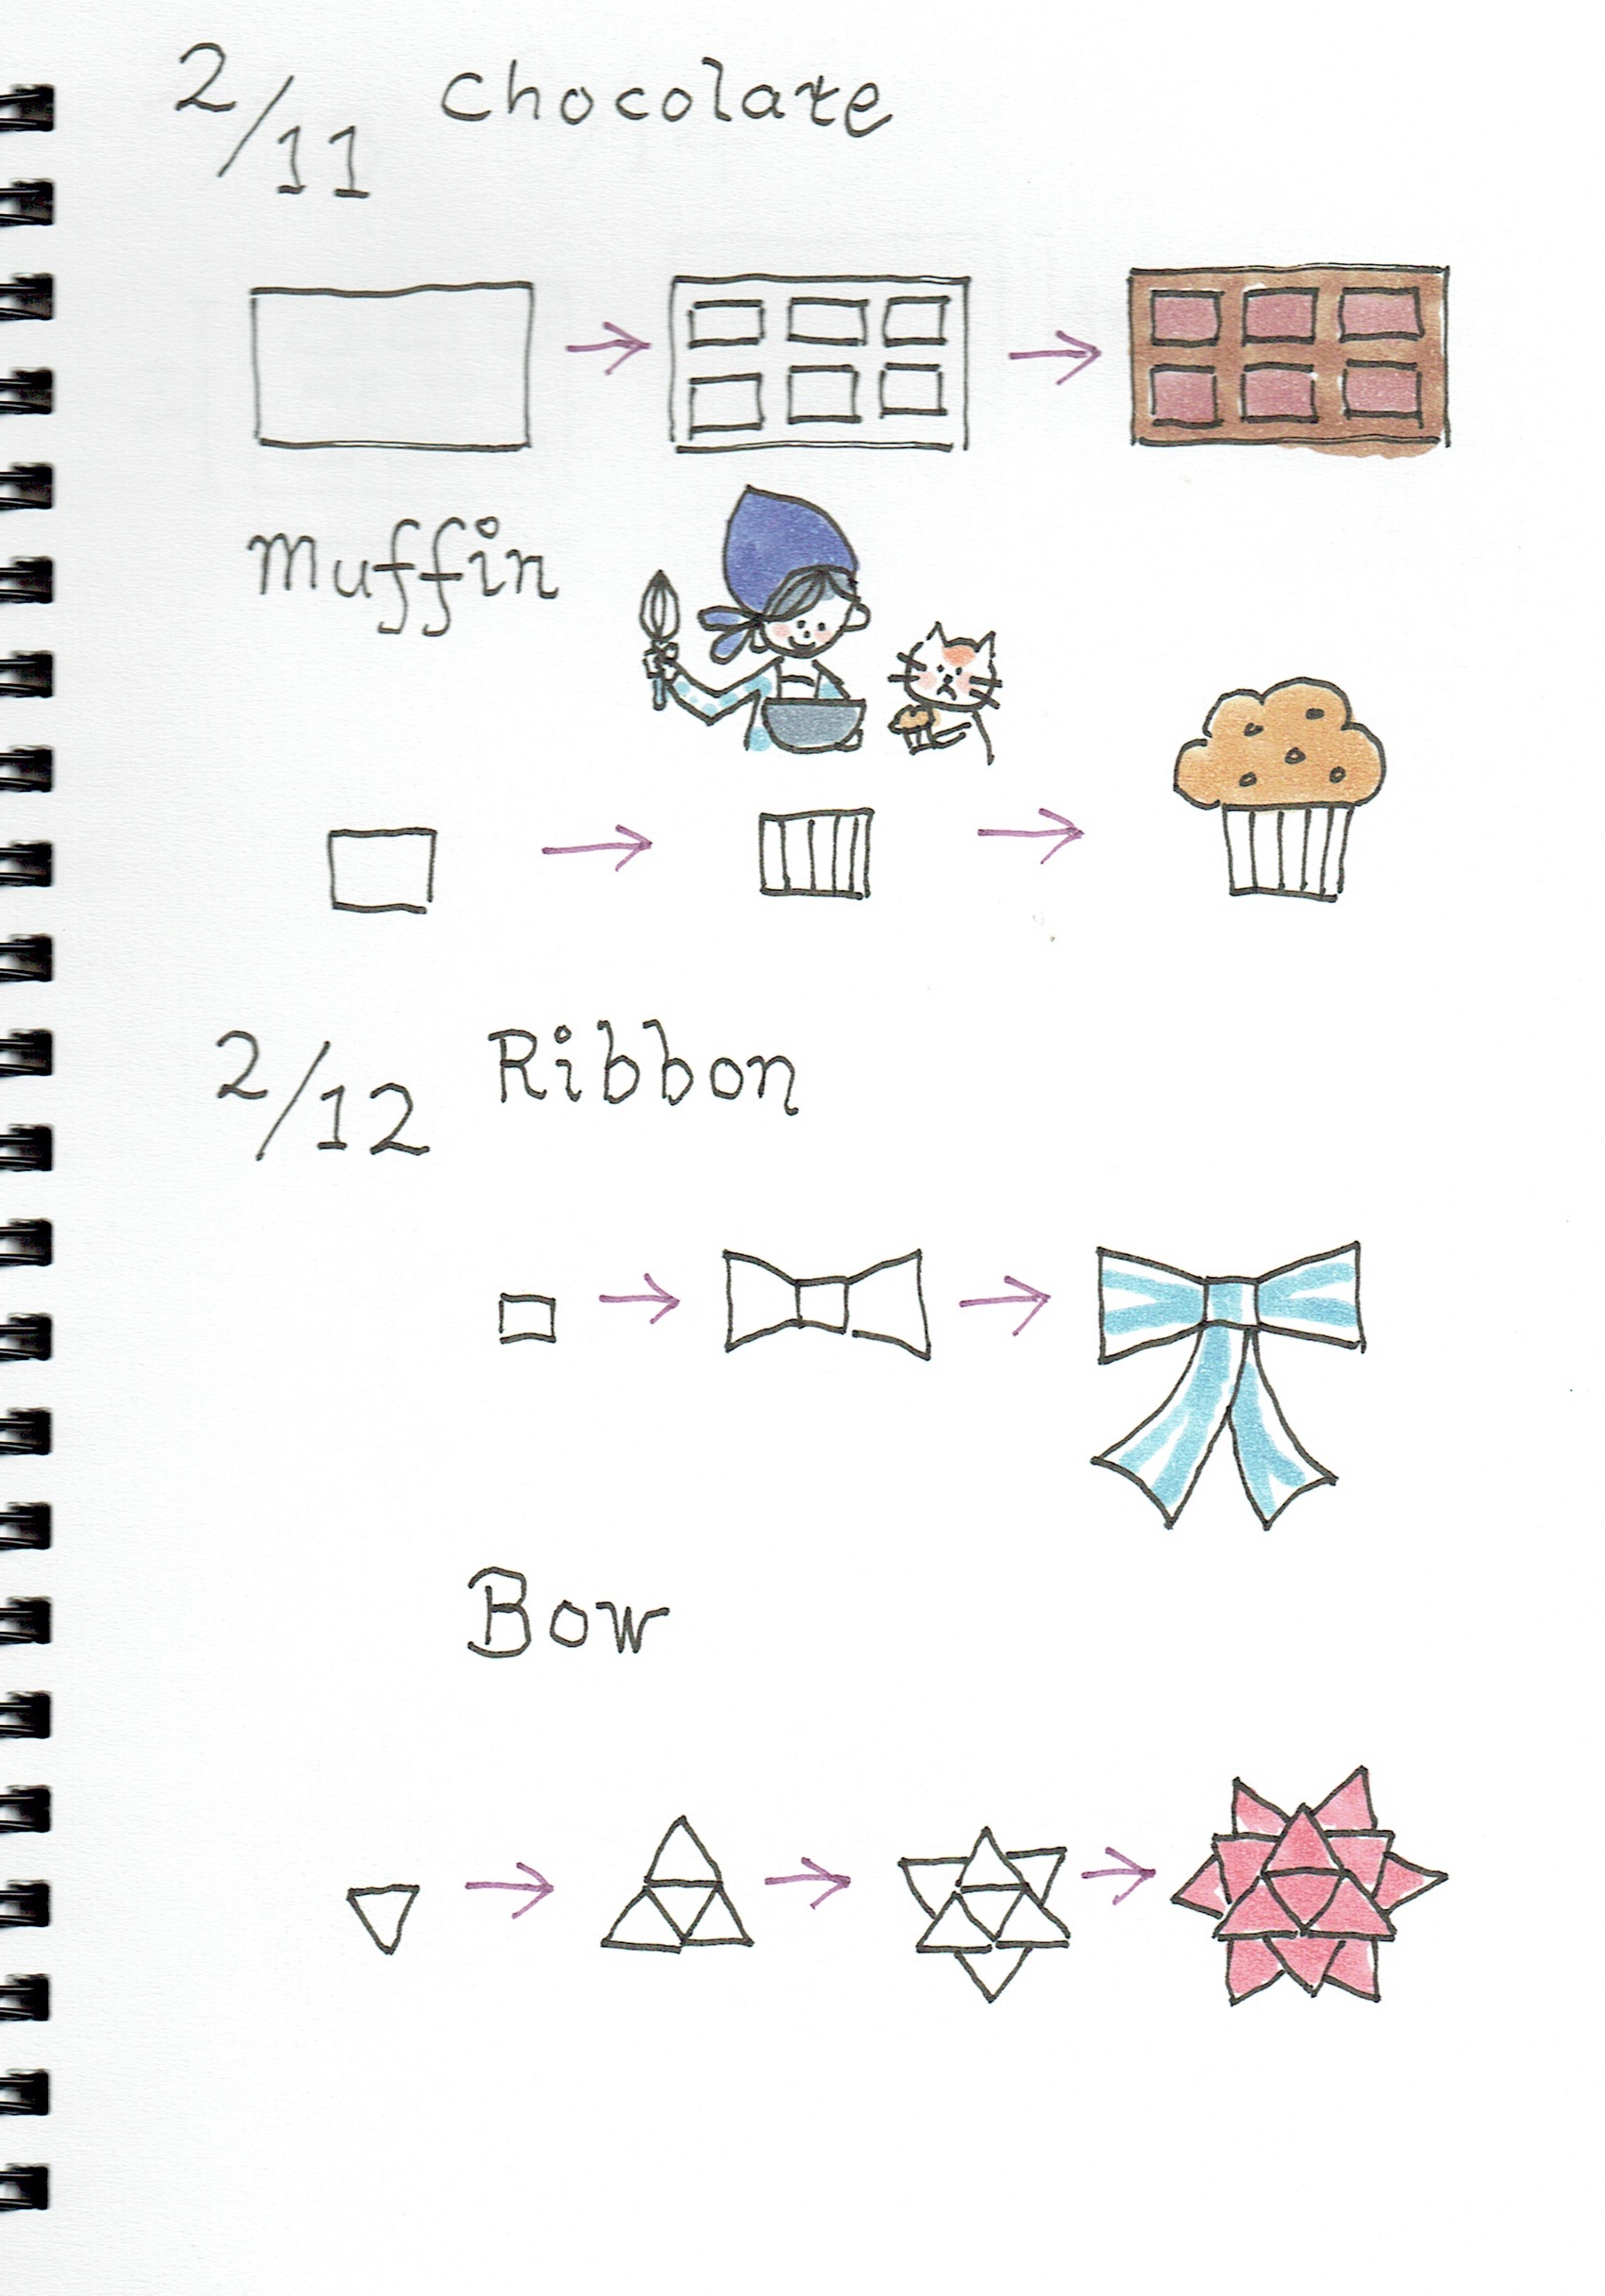 2/11 chocolate
Muffin
2/12 Ribbon
Bow